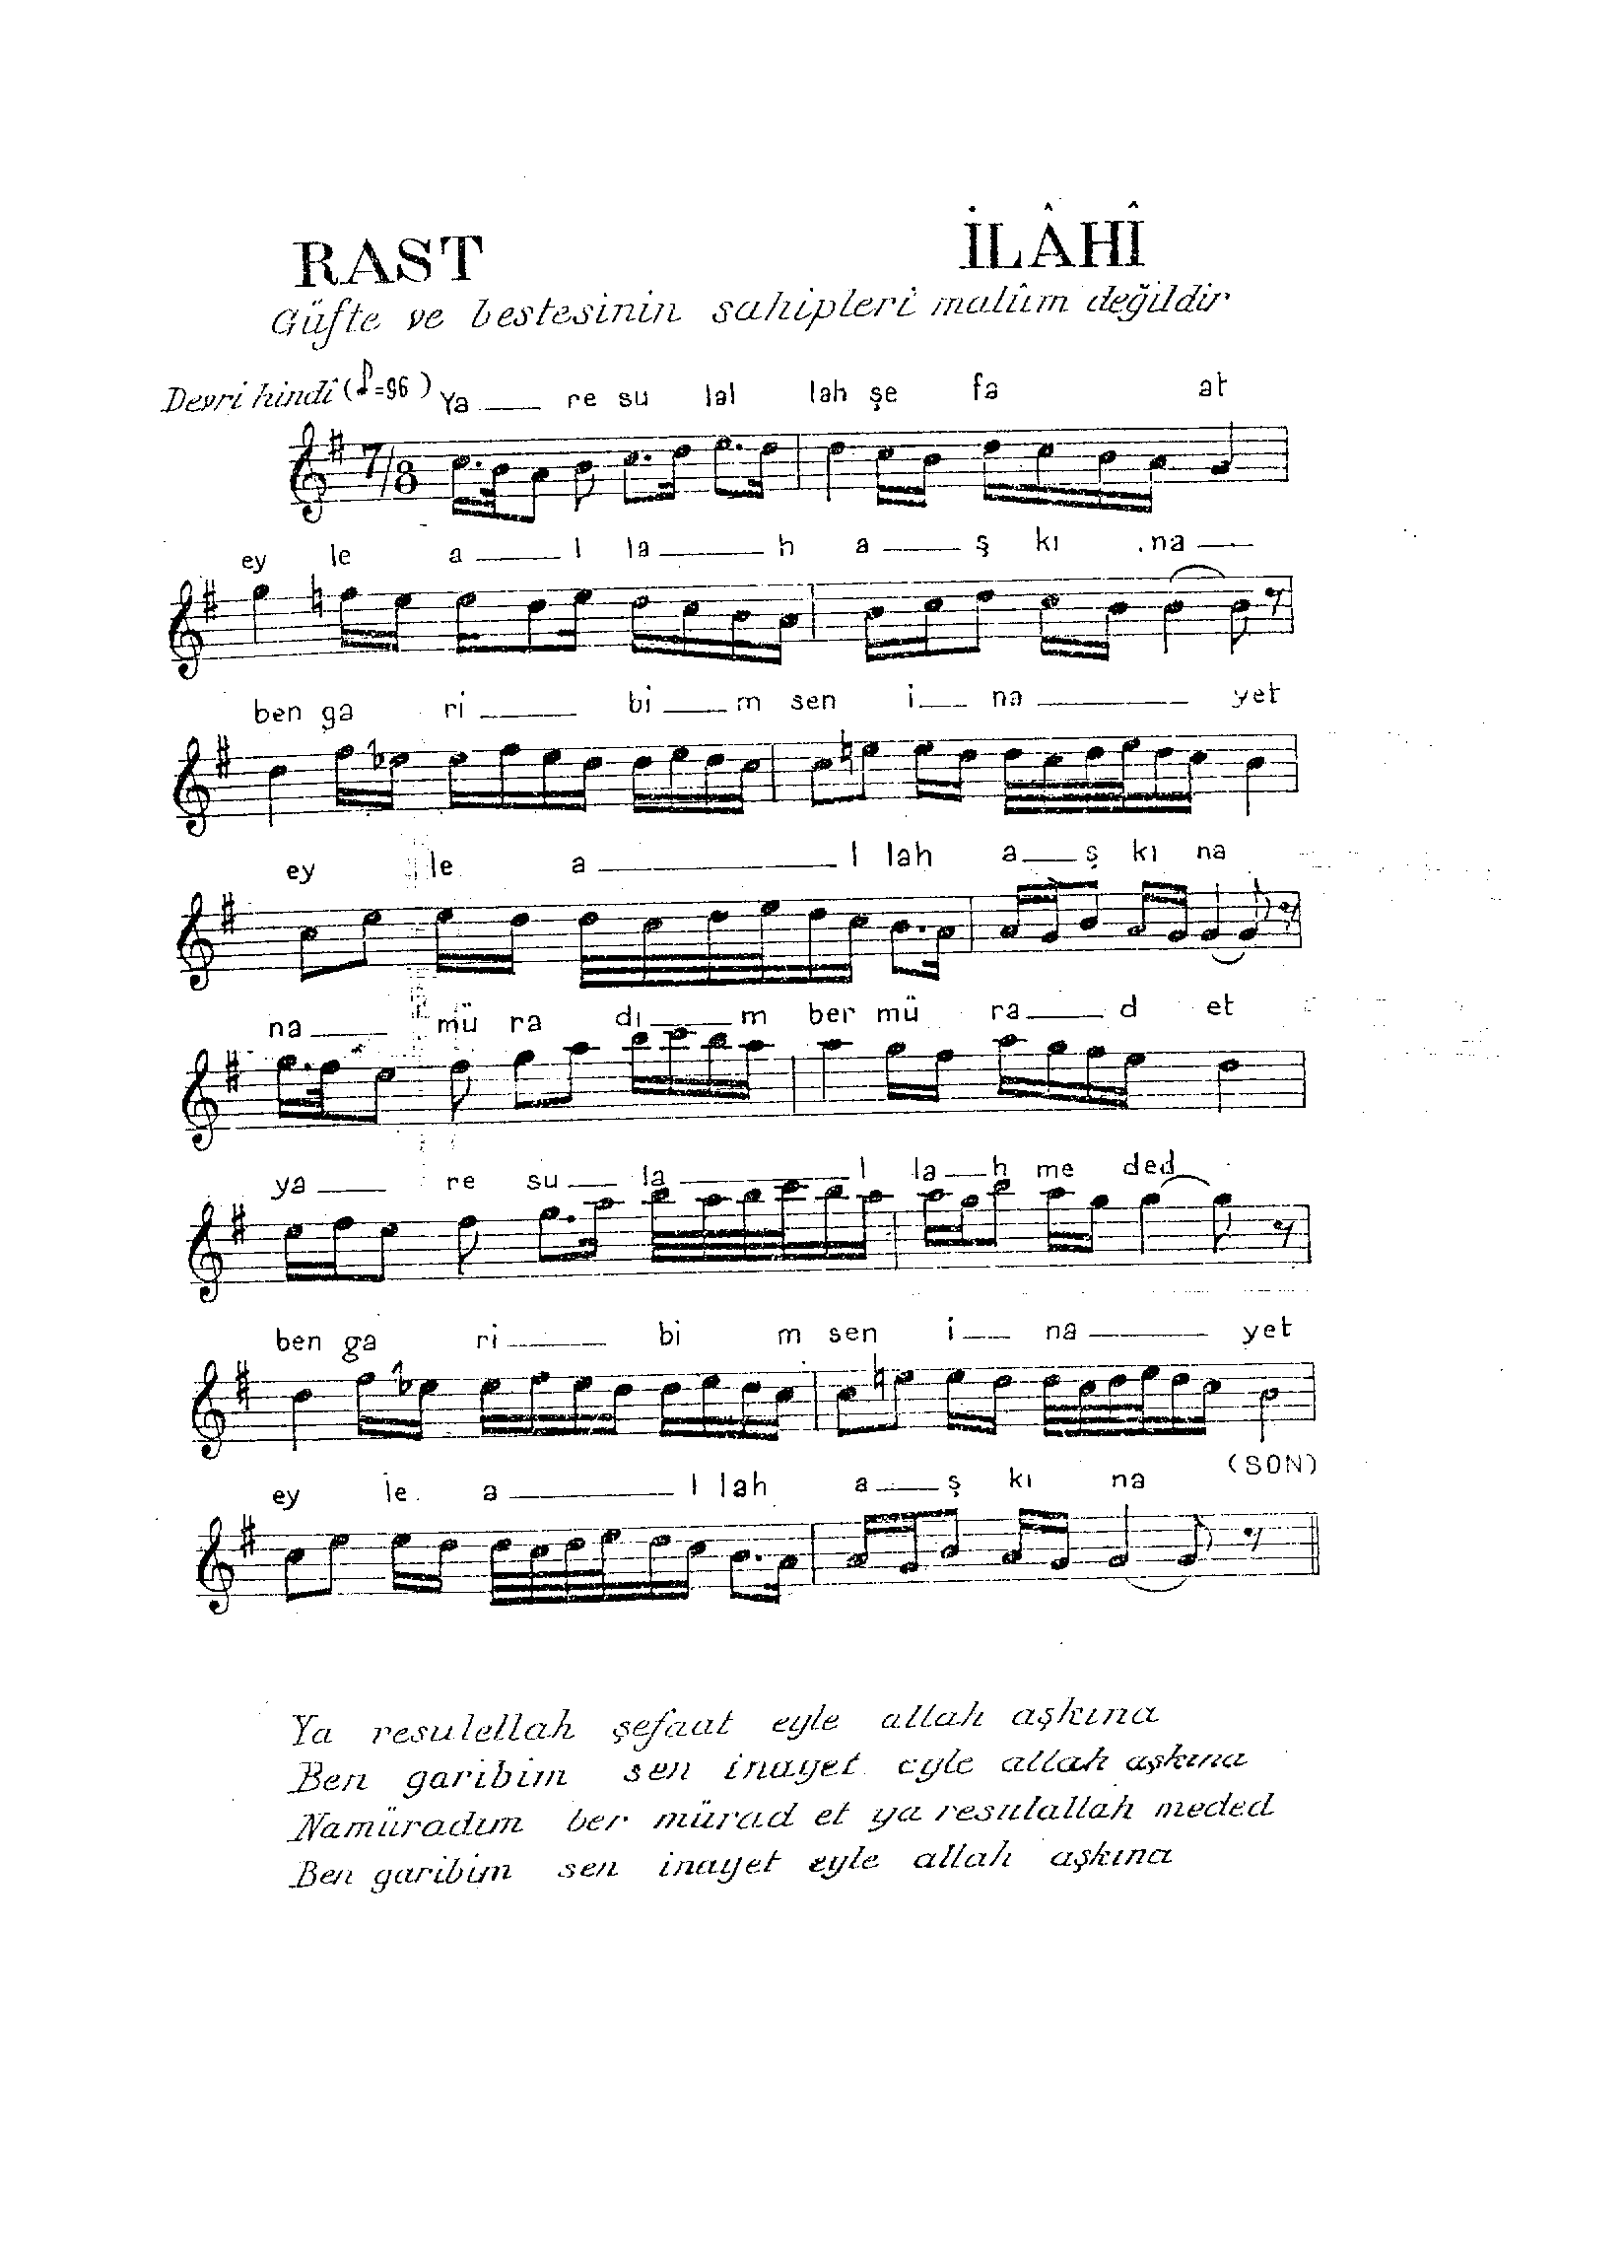 RAST İLÂHÎ
Güfte ve bestesinin sahipleri malûm değildir
Devri hindî (♪=96) Ya ___ re su lal lah şe fa at
7/8
ey le a ___ l la ___ h a ___ ş kı na ___
ben ga ri ___ bi ___ m sen i ___ na ___ yet
ey le a ___ l lah a ___ ş kı na
na ___ mü ra dı ___ m ber mü ra ___ d et
ya ___ re su ___ la ___ l la ___ h me ded
ben ga ri ___ bi m sen i ___ na ___ yet
(SON)
ey le a ___ l lah a ___ ş kı na
Ya resulellah şefaat eyle allah aşkına
Ben garibim sen inayet eyle allah aşkına
Namüradım ber mürad et ya resulallah meded
Ben garibim sen inayet eyle allah aşkına